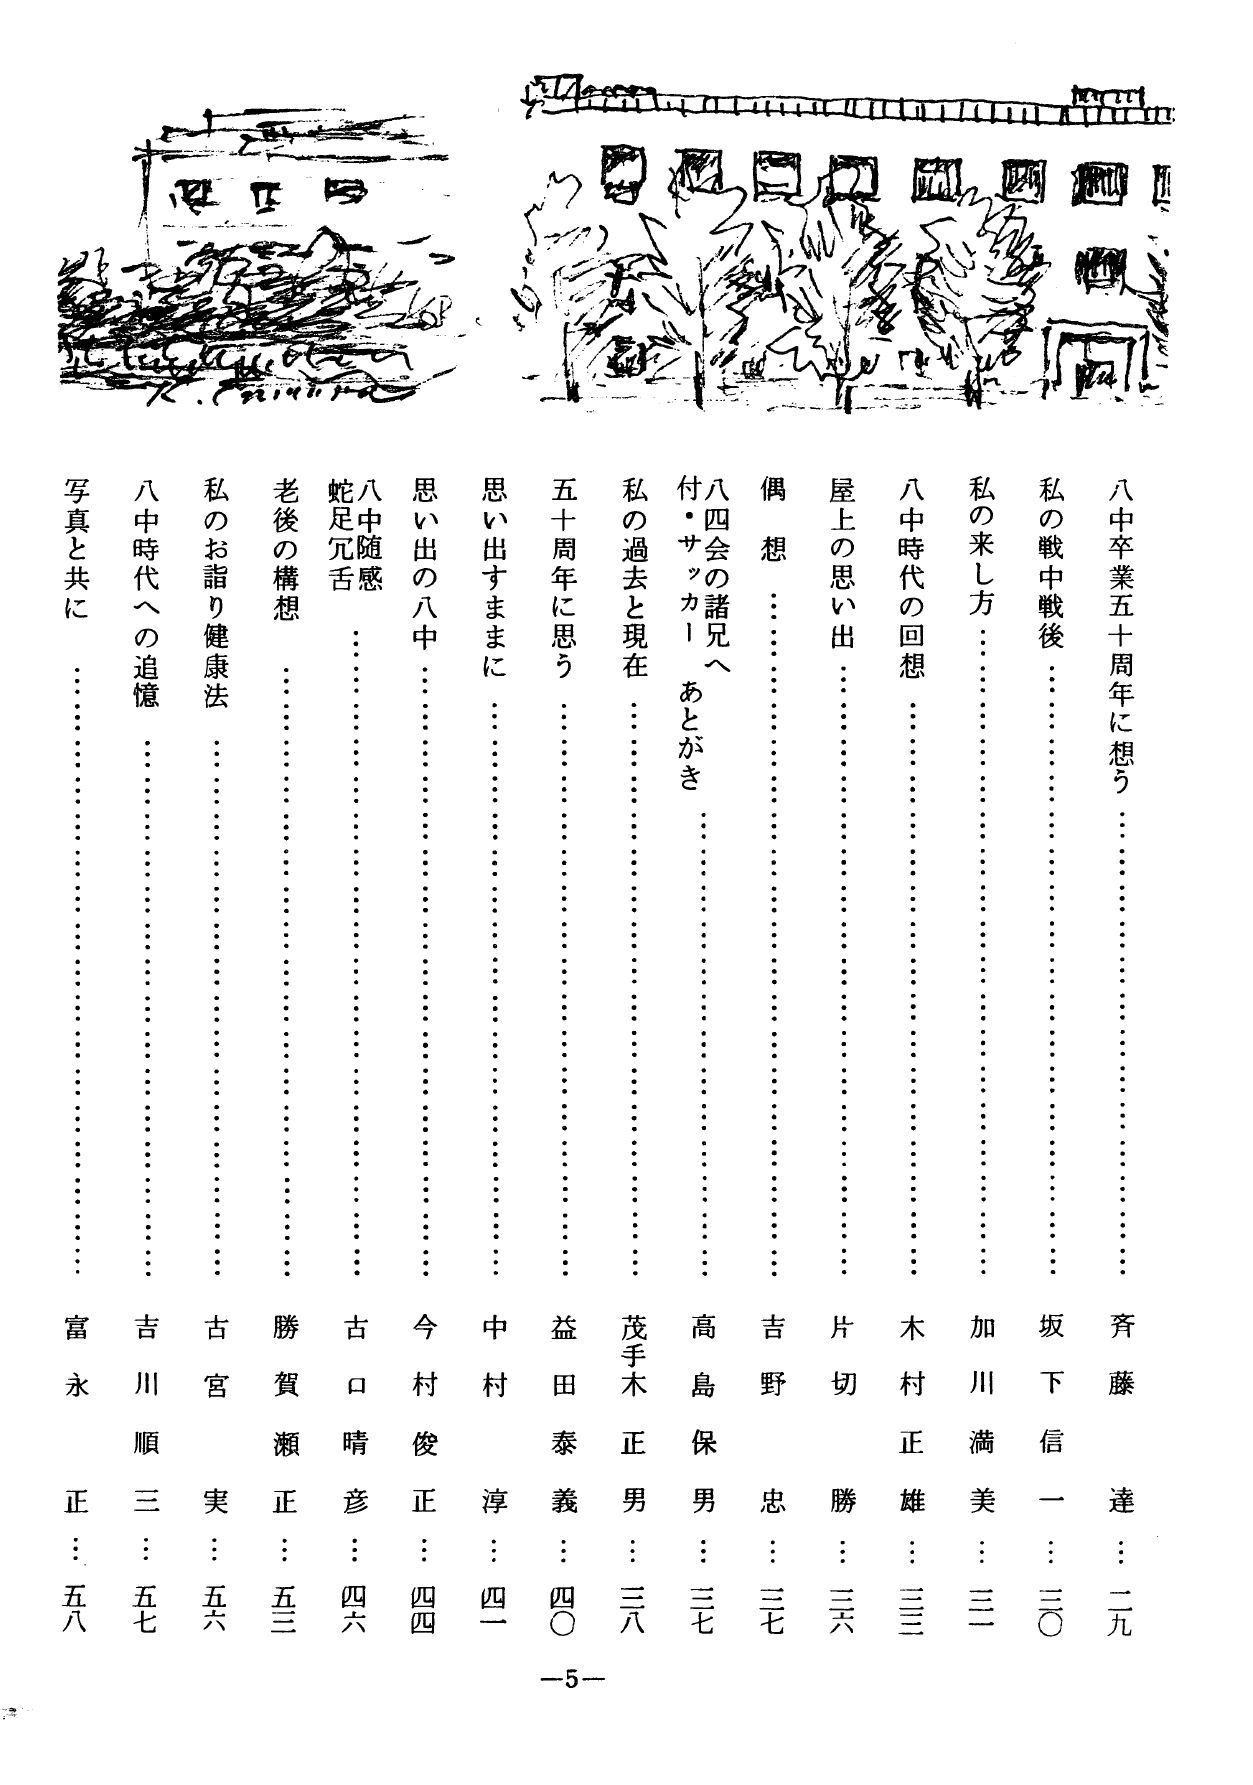 八中卒業五十周年に想う…………斉藤達…二九
私の戦中戦後…………坂下信一…三〇
私の来し方…………加川満美…三一
八中時代の回想…………木村正雄…三三
屋上の思い出…………片切勝…三六
偶想…………吉野忠…三七
八四会の諸兄へ
付・サッカー あとがき…………高島保男…三七
私の過去と現在…………茂手木正男…三八
五十周年に思う…………益田泰義…四〇
思い出すままに…………中村淳…四一
思い出の八中…………今村俊正…四四
八中随感
蛇足冗舌…………古口晴彦…四六
老後の構想…………勝賀瀬正…五三
私のお詣り健康法…………古宮実…五六
八中時代への追憶…………吉川順三…五七
写真と共に…………富永正…五八
—5—